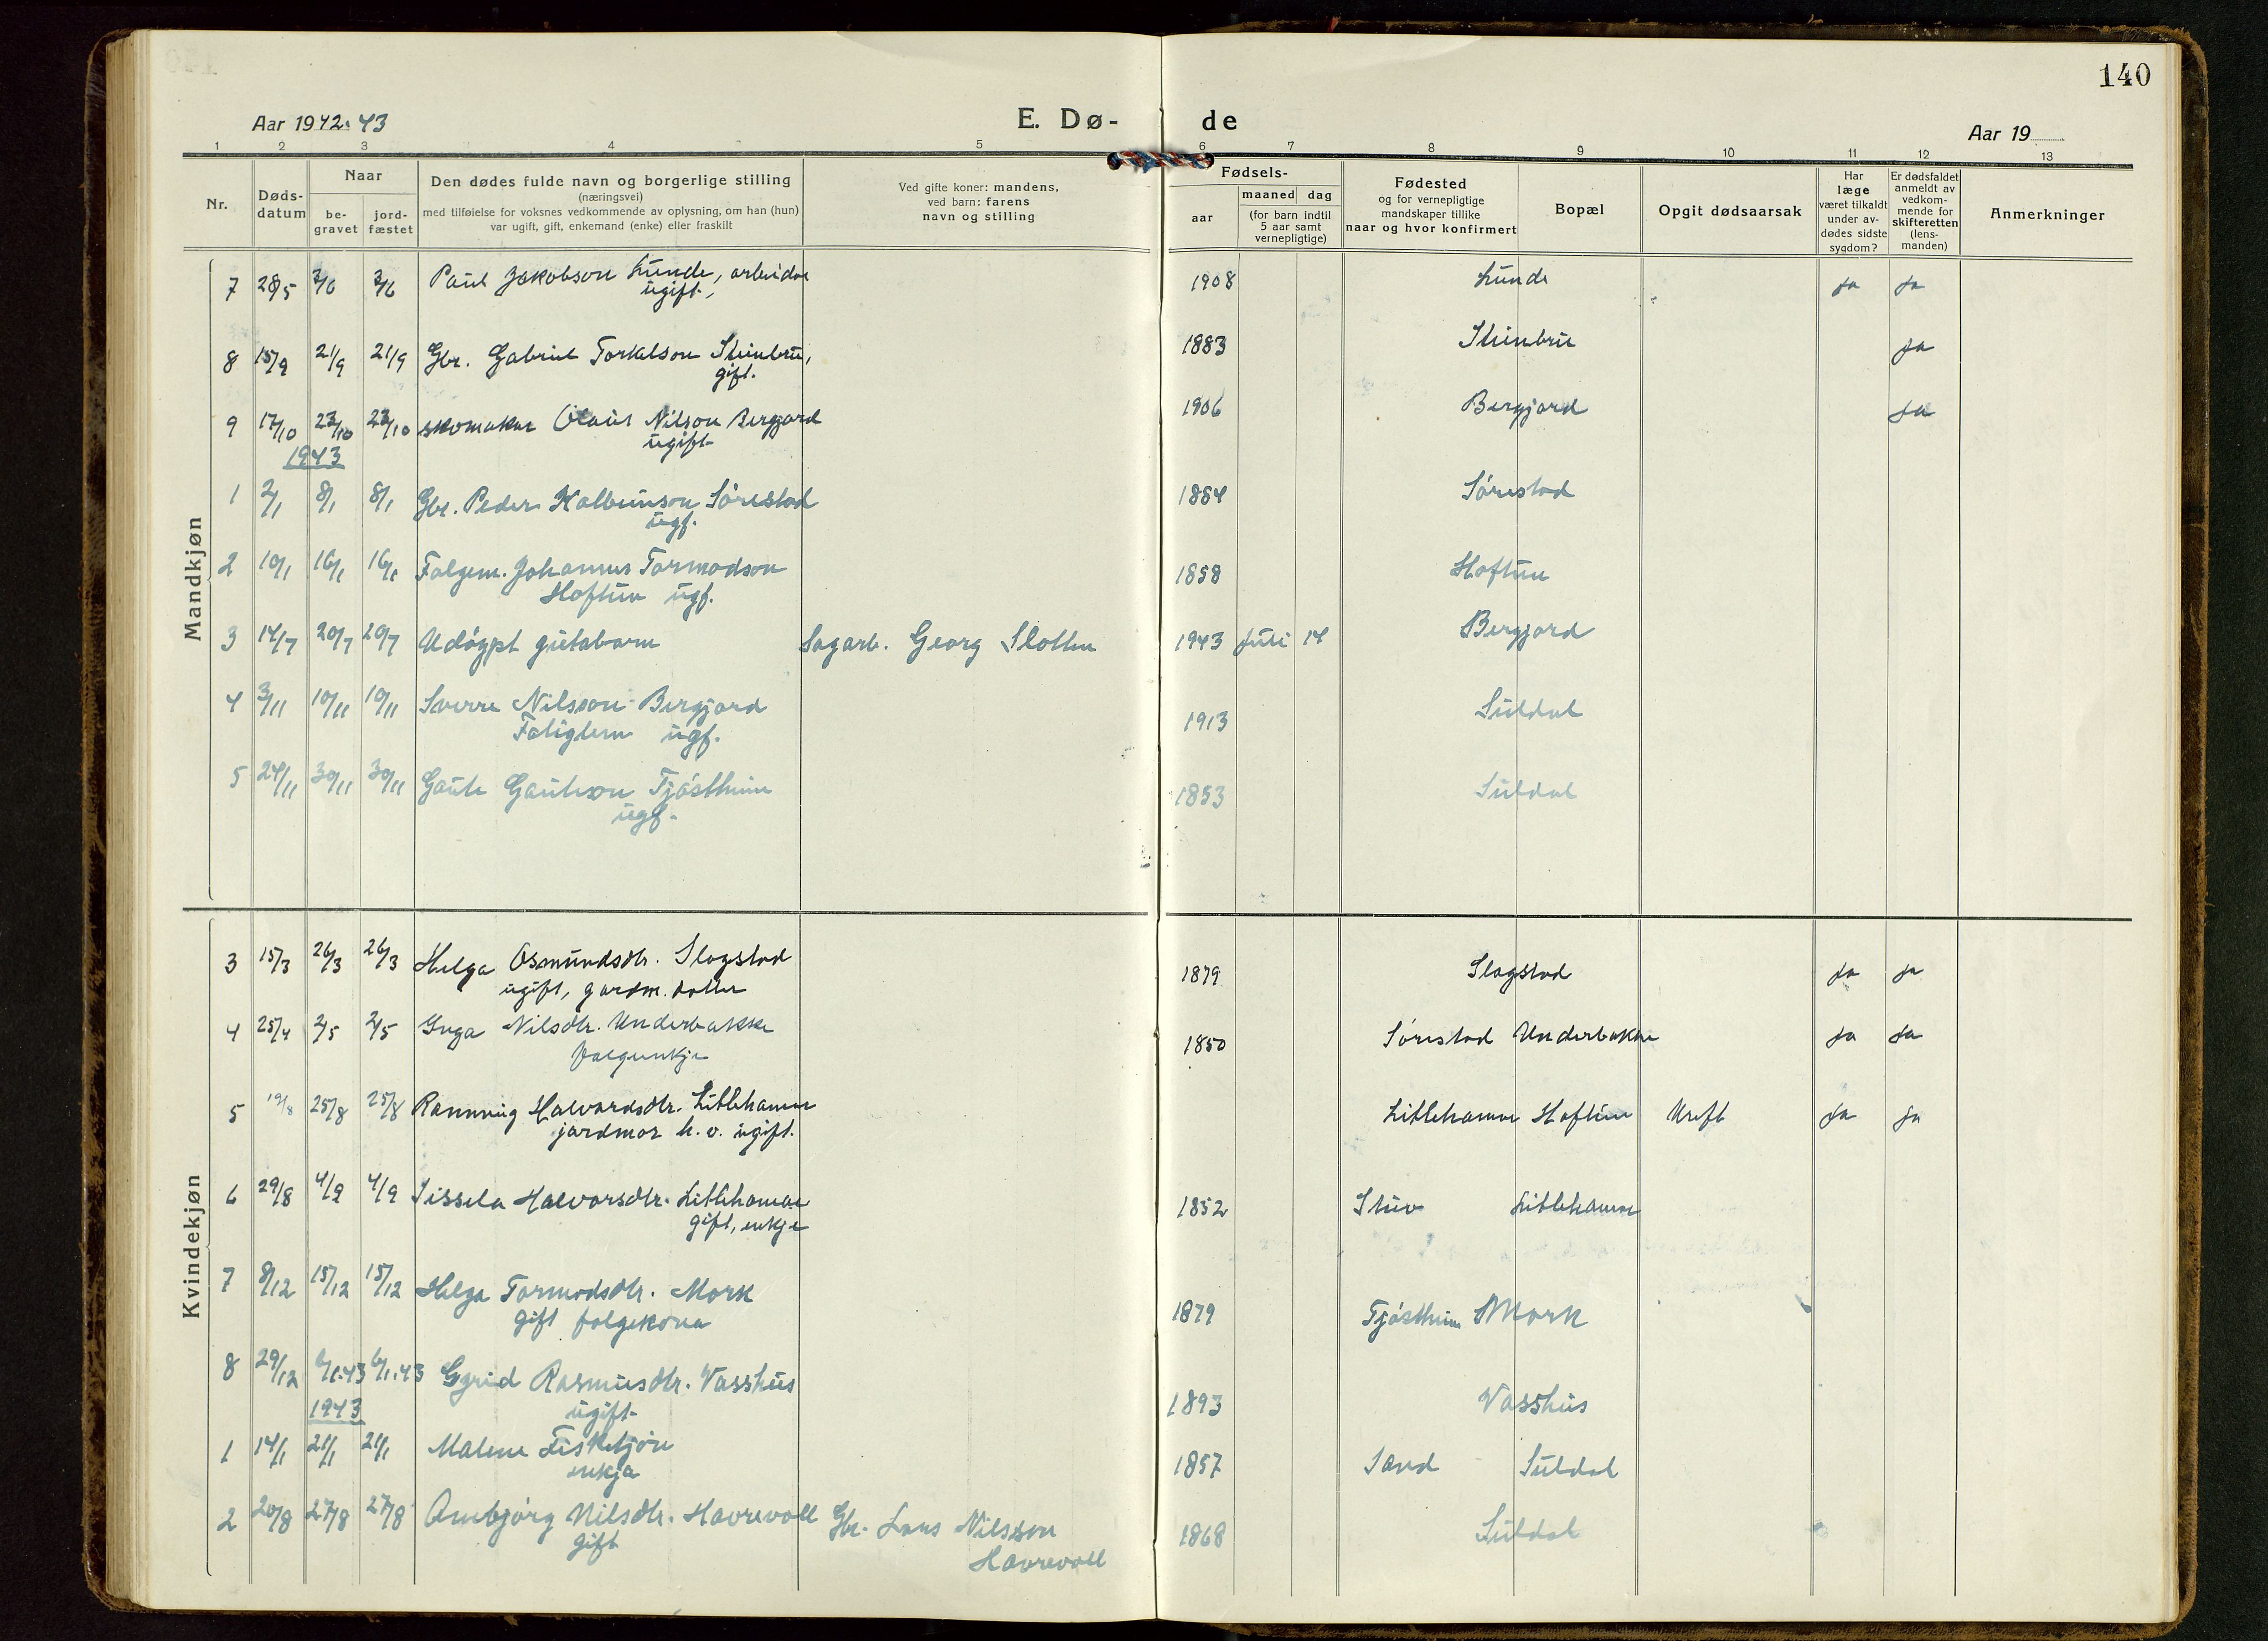 140
Aar 1942-43
E. Dø-de
Aar 19
1 2 3 4 5 6 7 8 9 10 11 12 13
Nr.
Døds-
datum
Naar
be-
gravet
jord-
fæstet
Den dødes fulde navn og borgerlige stilling
(næringsvei)
med tilføielse for voksnes vedkommende av oplysning, om han (hun)
var ugift, gift, enkemand (enke) eller fraskilt
Ved gifte koner: mandens,
ved barn: farens
navn og stilling
Fødsels-
aar
maaned dag
(for barn indtil
5 aar samt
vernepligtige)
Fødested
og for vernepligtige
mandskaper tillike
naar og hvor konfirmert
Bopæl
Opgit dødsaarsak
Har
læge
været tilkaldt
under av-
dødes sidste
sygdom?
Er dødsfaldet
anmeldt av
vedkom-
mende for
skifteretten
(lens-
manden)
Anmerkninger
Mandkjøn
7 28/5 3/6 3/6 Paul Jakobson Lunde, arbeidar 1908 Lunde Ja Ja
ugift,
8 15/9 21/9 21/9 Gbr. Gabriel Torkelson Steinbru, 1883 Steinbru Ja
gift.
9 17/10 23/10 23/10 skomakar Olaus Nilson Bergjord 1906 Bergjord Ja
ugift
1943
1 2/1 8/1 8/1 Gbr. Peder Kolbeinson Sørestad 1864 Sørestad
ugf.
2 10/1 16/1 16/1 Folgem. Johannes Tormodson 1858 Hoftun
Hoftun ugf.
3 14/7 20/7 20/7 Udøypt gutebarn Sagarb. Georg Slotten 1943 Juli 14 Bergjord
4 3/11 10/11 10/11 Sverre Nilsson Bergjord 1913 Suldal
Fatiglem ugf.
5 24/11 30/11 30/11 Gaute Gauteson Tjøstheim 1853 Suldal
ugf.
Kvindekjøn
3 15/3 26/3 26/3 Helga Osmundsdtr. Slogstad 1879 Slagstad Ja Ja
ugift, gardm. dotter
4 25/4 2/5 2/5 Inga Nilsdtr. Underbakke 1850 Sørestad Underbakke Ja Ja
folgeenkje
5 19/8 25/8 25/8 Rannveig Halvordsdtr. Litlehamar Litlehamar Hoftun Kreft Ja Ja
jordmor h. v. ugift.
6 29/8 4/9 4/9 Sissela Halvorsdtr. Litlehamar 1852 Litlehamar
gift, enkje
7 8/12 15/12 15/12 Helga Tormodsdtr. Mork 1879 Tjøstheim Mork
gift folgekona
8 29/12 6/1.43 6/1.43 Gyrid Rasmusdtr. Vasshus 1893 Vasshus
1943 ugift
1 14/1 21/1 21/1 Malene Fisketjøn 1857 Sand Suldal
enkja
2 20/8 27/8 27/8 Ambjørg Nilsdtr. Havrevoll Gbr. Lars Nilsson 1868 Suldal
gift Havrevoll